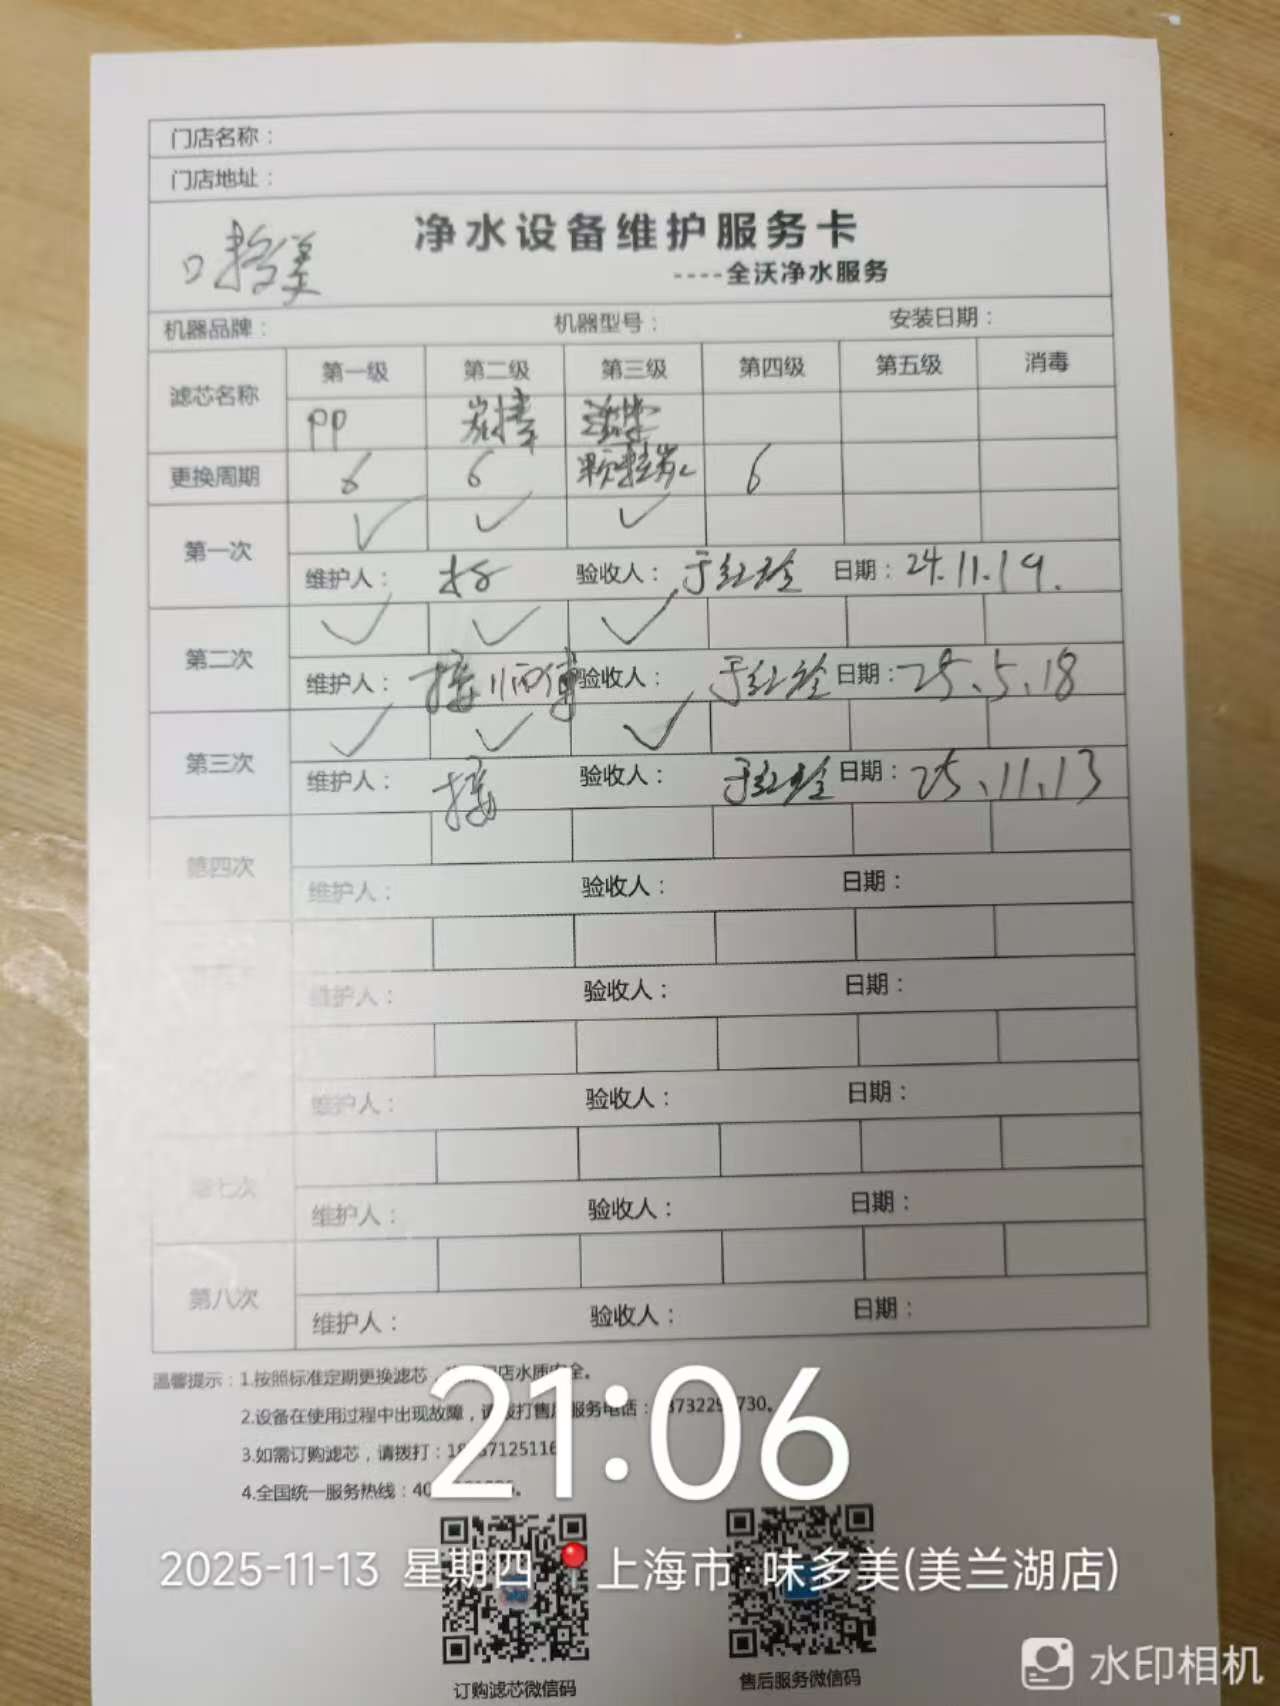 门店名称：
门店地址：
净水设备维护服务卡
----全沃净水服务
机器品牌： 机器型号： 安装日期：
滤芯名称 第一级 第二级 第三级 第四级 第五级 消毒
PP 炭棒
更换周期 6 6 颗粒炭 6
第一次 ✓ ✓ ✓
维护人： 验收人：于红玲 日期：24.11.19.
第二次 ✓ ✓ ✓
维护人： 师傅 验收人：于红玲 日期：25.5.18
第三次 ✓ ✓ ✓
维护人： 验收人：于红玲 日期：25.11.13
第四次
维护人： 验收人： 日期：
维护人： 验收人： 日期：
维护人： 验收人： 日期：
第七次
维护人： 验收人： 日期：
第八次
维护人： 验收人： 日期：
温馨提示：1.按照标准定期更换滤芯，门店水质安全。
2.设备在使用过程中出现故障，请拨打售后服务电话：
3.如需订购滤芯，请拨打：
4.全国统一服务热线：
21:06
2025-11-13 星期四 上海市·味多美(美兰湖店)
订购滤芯微信码 售后服务微信码
水印相机